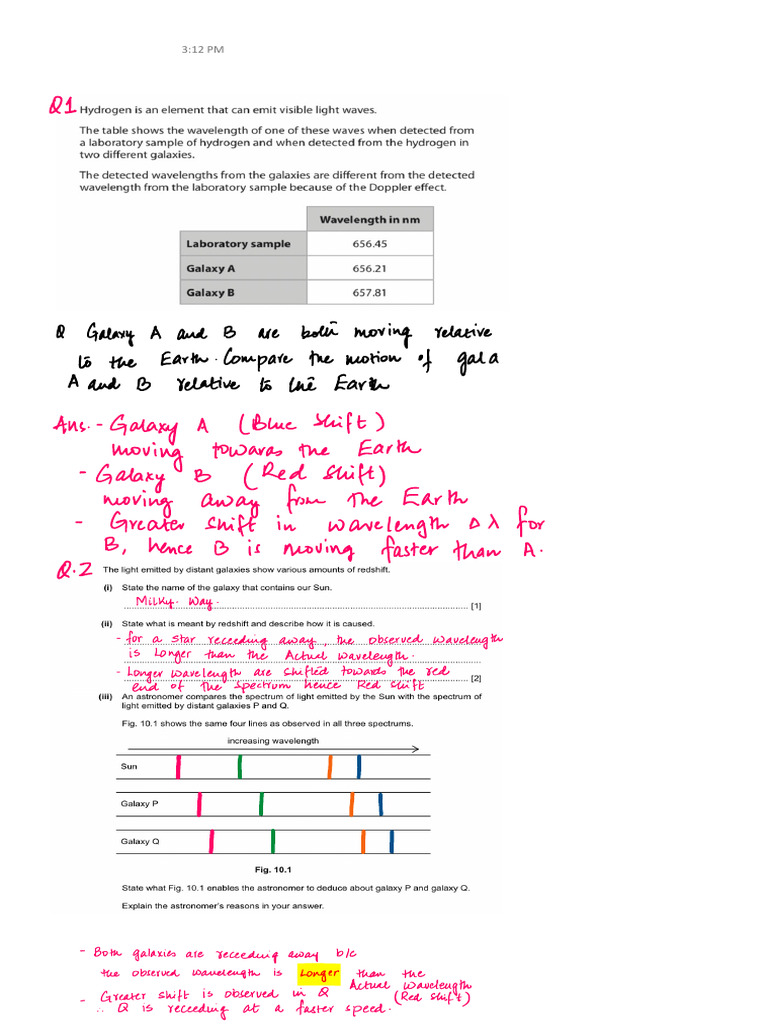 3:12 PM
Q1 Hydrogen is an element that can emit visible light waves.
The table shows the wavelength of one of these waves when detected from
a laboratory sample of hydrogen and when detected from the hydrogen in
two different galaxies.
The detected wavelengths from the galaxies are different from the detected
wavelength from the laboratory sample because of the Doppler effect.
Wavelength in nm
Laboratory sample 656.45
Galaxy A 656.21
Galaxy B 657.81
Q Galaxy A and B are both moving relative
to the Earth. Compare the motion of gala
A and B relative to the Earth
Ans. - Galaxy A (Blue shift)
moving towards the Earth
- Galaxy B (Red shift)
moving away from the Earth
- Greater shift in wavelength Δλ for
B, hence B is moving faster than A.
Q.2 The light emitted by distant galaxies show various amounts of redshift.
(i) State the name of the galaxy that contains our Sun.
Milky. Way. [1]
(ii) State what is meant by redshift and describe how it is caused.
- for a star receeding away, the observed wavelength
is Longer than the Actual wavelength.
- Longer wavelength are shifted towards the red
end of the spectrum hence Red shift [2]
(iii) An astronomer compares the spectrum of light emitted by the Sun with the spectrum of
light emitted by distant galaxies P and Q.
Fig. 10.1 shows the same four lines as observed in all three spectrums.
increasing wavelength
Sun
Galaxy P
Galaxy Q
Fig. 10.1
State what Fig. 10.1 enables the astronomer to deduce about galaxy P and galaxy Q.
Explain the astronomer's reasons in your answer.
- Both galaxies are receeding away b/c
the observed wavelength is Longer than the
Actual wavelength
(Red shift)
- Greater shift is observed in Q
∴ Q is receeding at a faster speed.